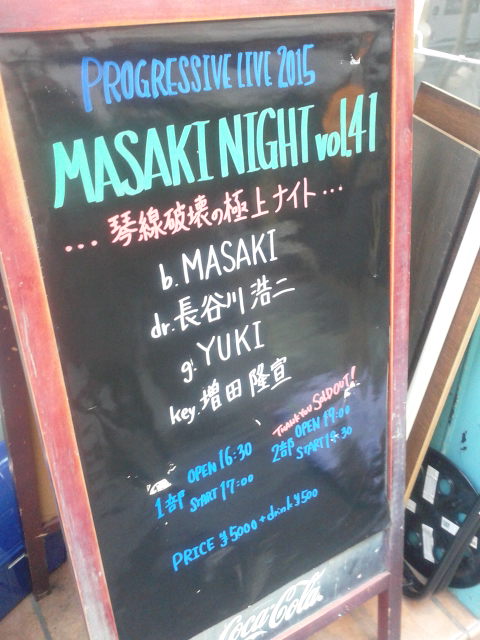 PROGRESSIVE LIVE 2015
MASAKI NIGHT vol.41
...琴線破壊の極上ナイト...
b. MASAKI
dr. 長谷川浩二
g. YUKI
key. 増田隆宣
1部 OPEN 16:30
START 17:00
THANK YOU SOLD OUT!
2部 OPEN 19:00
START 19:30
PRICE ¥5000+drink¥500
Coca-Cola